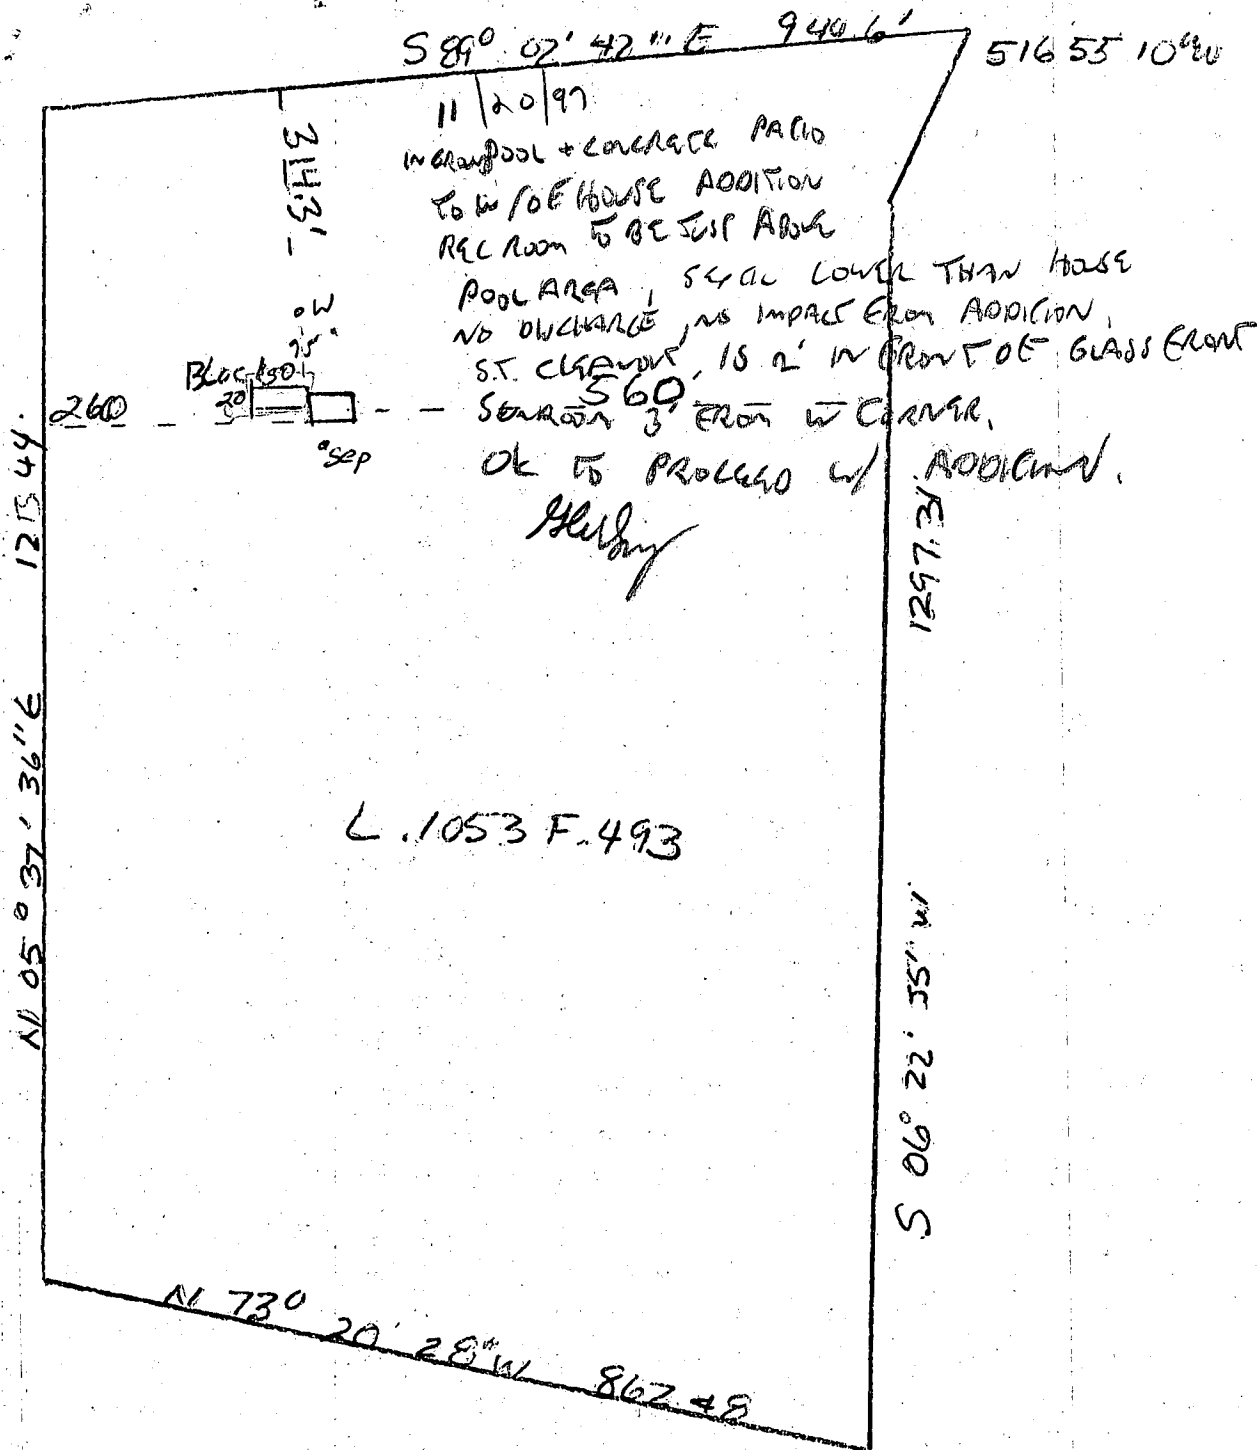 S 89° 02' 42" E 940.6'
S 16 55 10" W
11/20/97
INGROUNDPOOL + CONCRETE PATIO
TO W/OF HOUSE ADDITION
REC ROOM TO BE JUST ABOVE
POOL AREA, SEPTIC LOWER THAN HOUSE
NO DISCHARGE, NO IMPACT FROM ADDITION.
S.T. CLEANOUT, IS 2' IN FRONT OF GLASS FRONT
SUNROOM 3' FROM W CORNER.
OK TO PROCEED W/ ADDITION.
314.3'
°W
75'
BLDG 50
20
260
560
°Sep
1297.31
S 06° 22' 55" W
N 05° 37' 36" E
L.1053 F.493
N 73° 20' 28" W 862.48